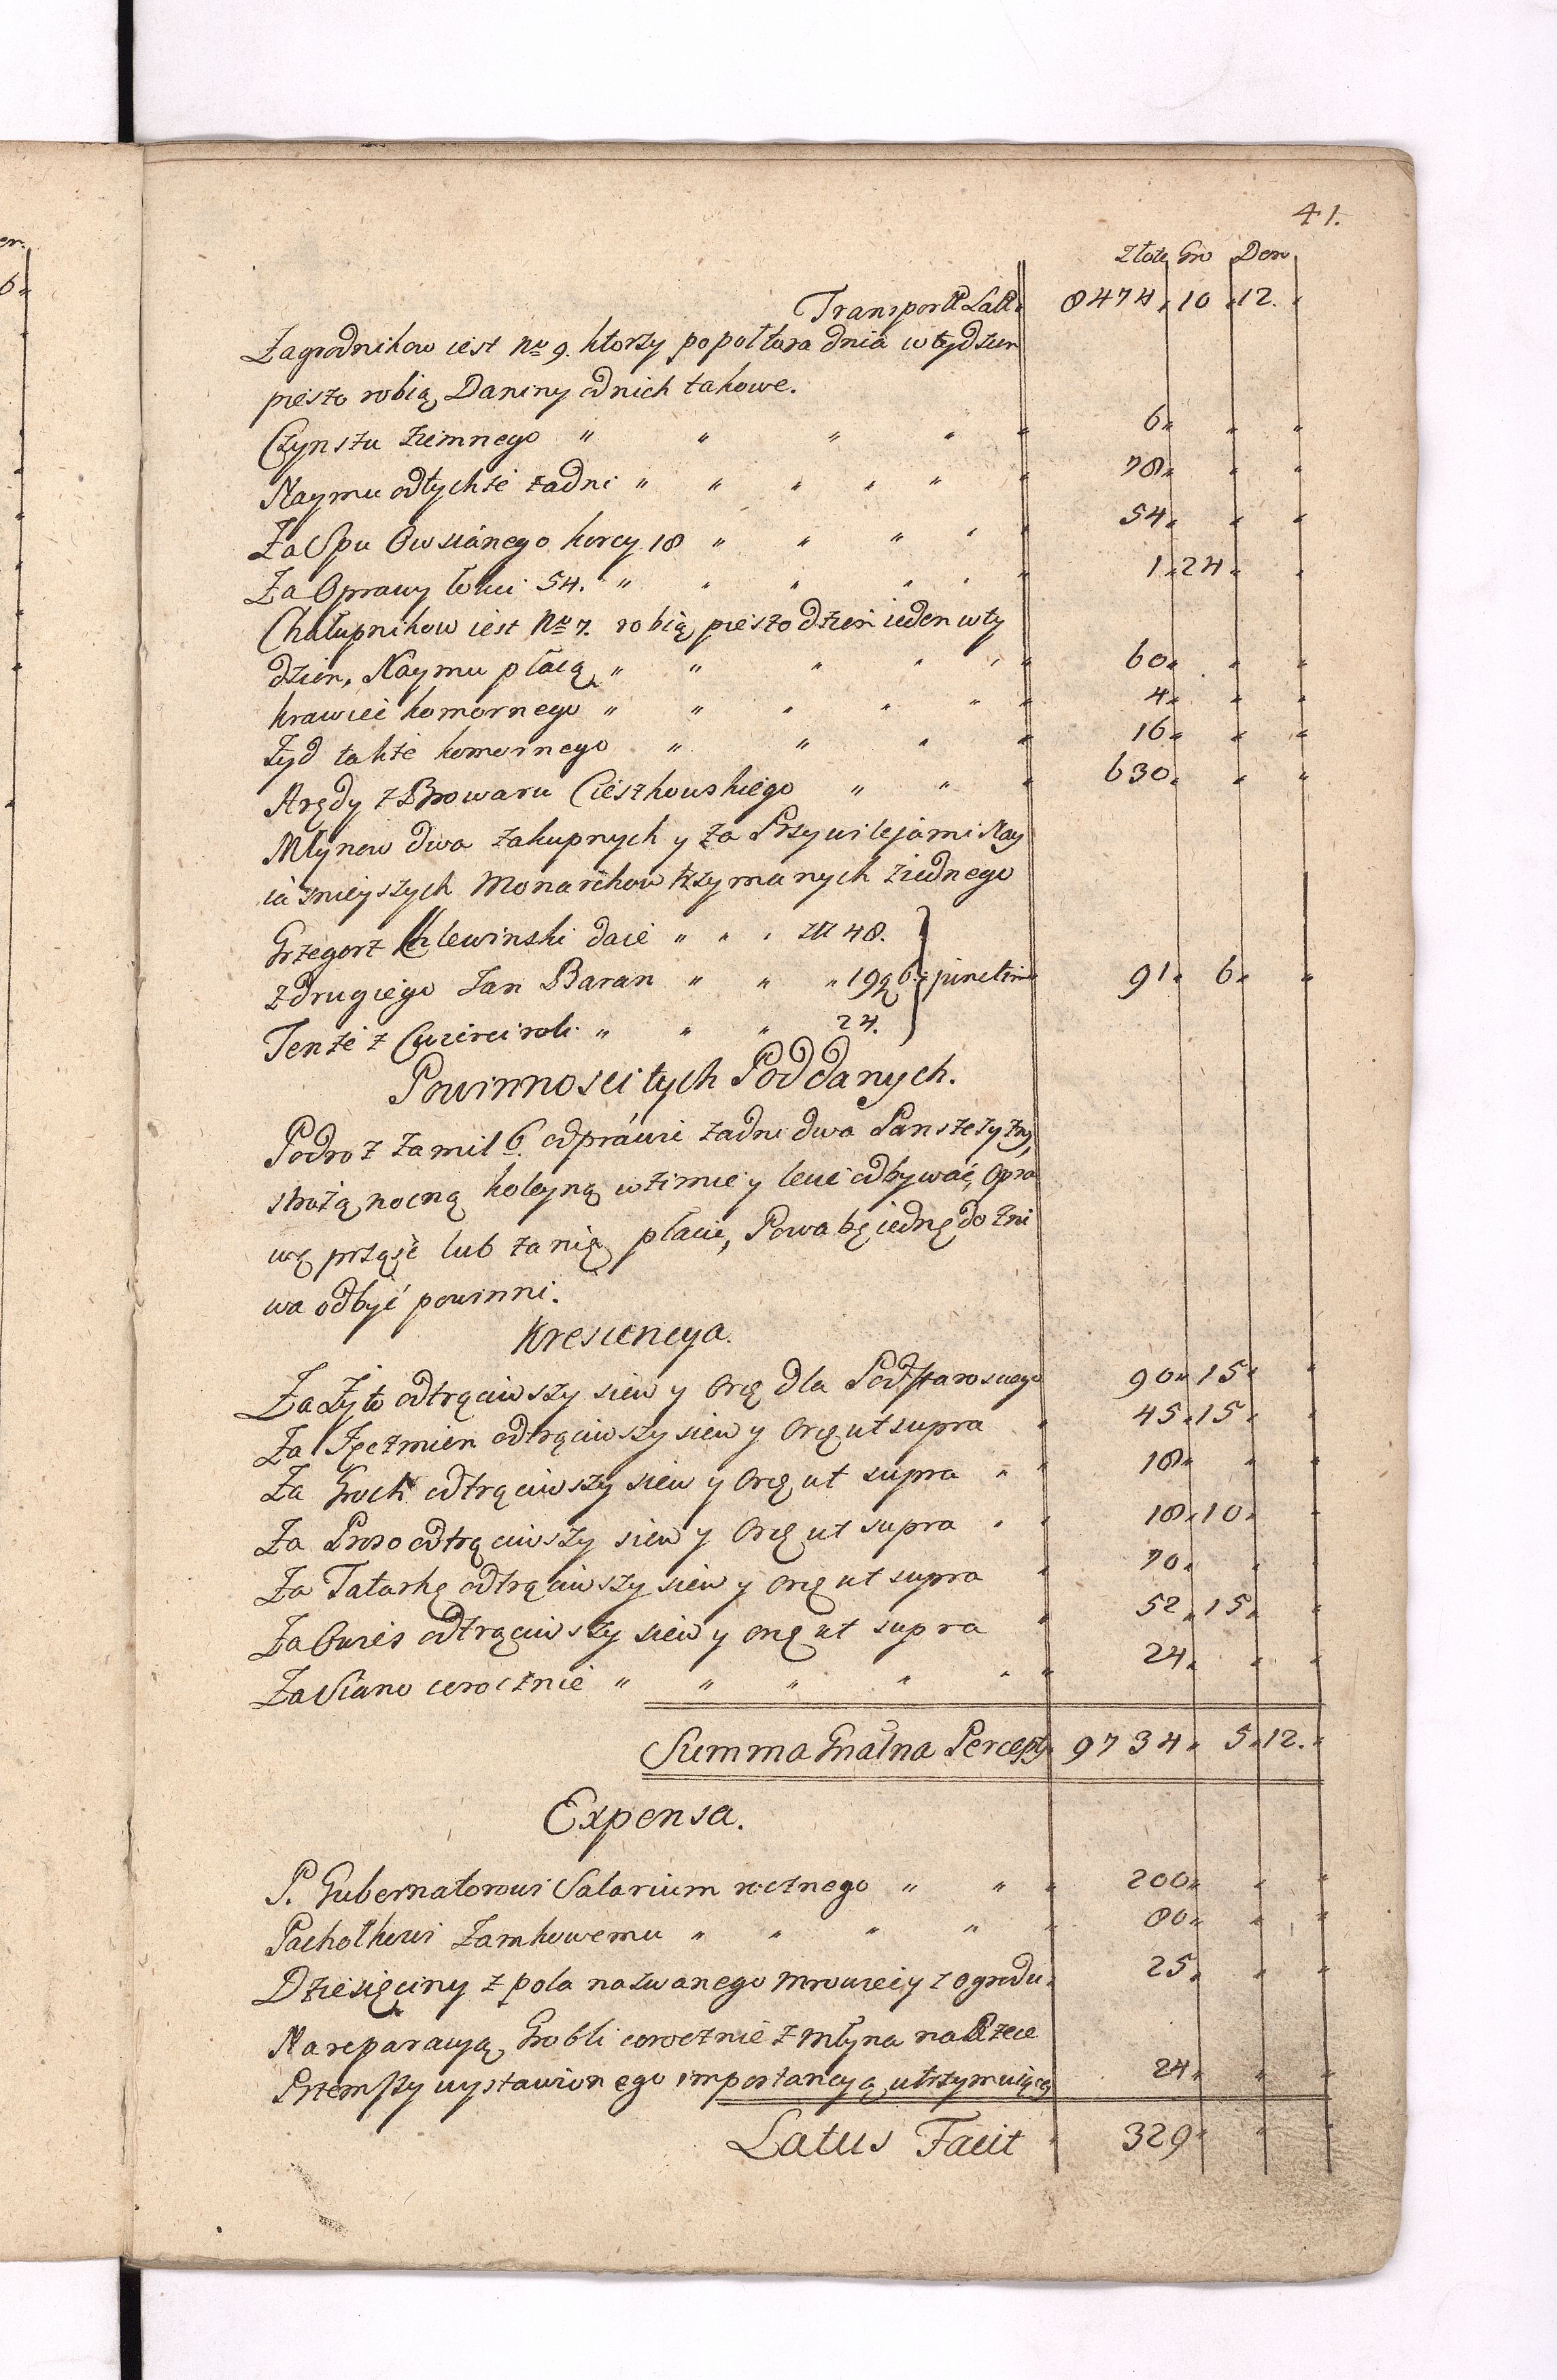 41.
Złote Gro Den
Transport Lat. 8474 10 12.
Zagrodnikow iest No 9. ktorzy popołtora dnia w tydzien
pieszo robią, Daniny od nich takowe.
Czynszu ziemnego " " " " " 6
Naymu od tychże zadni " " " " " " 78
Za Spu Owsianego korcy 18 " " " " " 54
Za Oprawy łokci 54. " " " " " " 1 24
Chałupnikow iest No 7. robią pieszo dzien ieden w ty
dzien, Naymu płacą " " " " " " 60
krawiec komornego " " " " " " 4
Zyd także komornego " " " " 16
Arędy z Browaru Cieszkowskiego " " " 630
Młynow dwa zakupnych y za Przywilejami Nay
iaśnieyszych Monarchow trzymanych z iednego
Grzegorz Chlewinski daie " " " zł 48.
z drugiego Jan Baran " " " 19 g 6. junctim 91 6
Tenże z Cwierci roli " " " 24.
Powinnosci tych Poddanych.
Podroż za mil 6. odprawic za dni dwa Panszczyzny,
strożą nocną koleyną w zimie y lecie odbywać, Opra
wę prząść lub za nię płacić, Powabę iednę do żni
wa odbyć powinni.
Krescencya.
Za Zyto odtrąciwszy siew y Orę dla Podstarosciego 90 15
Za Jęczmien odtrąciwszy siew y Orę ut supra " 45 15
Za Groch odtrąciwszy siew y Orę ut supra " " 18
Za Proso odtrąciwszy siew y Orę ut supra " " 18 10
Za Tatarkę odtrąciwszy siew y Orę ut supra " 70
Za Owies odtrąciwszy siew y Orę ut supra " 52 15
Za Siano corocznie " " " " " " 24
Summa Gnalna Percepty 9734 5 12.
Expensa.
P. Gubernatorowi Salarium rocznego " " " 200
Pachołkowi Zamkowemu " " " " " 80
Dziesięciny z pola nazwanego Mrowiec y z ogrodu 25
Na reparacyą Grobli corocznie z Młyna na Rzece
Przemszy wystawionego importancyą utrzymuiącey 24
Latus Facit 329